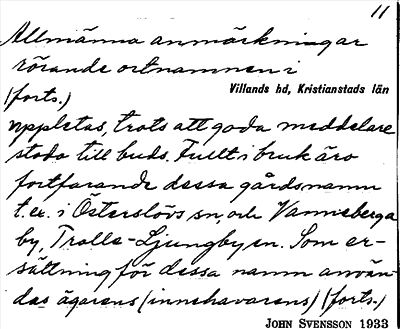 11
Allmänna anmärkningar
rörande ortnamnen i
Villands hd, Kristianstads län
(forts.)
uppletas, trots att goda meddelare
stodo till buds. Fullt i bruk äro
fortfarande dessa gårdsnamn
t.ex. i Österslövs sn, och Vanneberga
by, Trolle-Ljungby sn. Som er-
sättning för dessa namn använ-
das ägarens (innehavarens) (forts.)
JOHN SVENSSON 1933